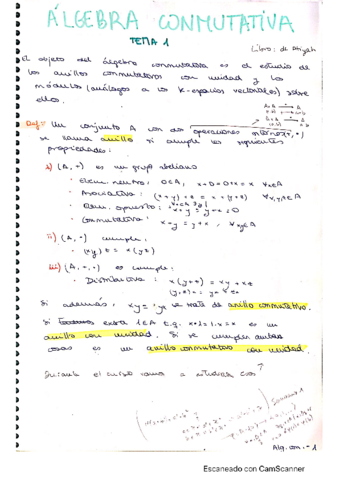 ÁLGEBRA CONMUTATIVA
TEMA 1
Libro: de Atiyah
El objeto del álgebra conmutativa es el estudio de
los anillos conmutativos con unidad y los
módulos (análogos a los K-espacios vectoriales) sobre
ellos.
Def:= Un conjunto A con dos operaciones internas (+, ·)
se llama anillo si cumple las siguientes
propiedades:
i) (A, +) es un grupo abeliano
· Elem. neutro: 0∈A, x+0=0+x = x ∀x∈A
· Asociativa: (x+y)+z = x+(y+z) ∀x,y,z∈A
· Elem. opuesto: ∀x∈A ∃y |
x+y = y+x = 0
· Conmutativa: x+y = y+x, ∀x,y∈A
ii) (A, ·) cumple:
· (xy)z = x(yz)
iii) (A, +, ·) cumple:
· Distributiva: x(y+z) = xy + xz
(y+z)x = yx + zx
Si además: xy = yx se trata de anillo conmutativo.
Si existe 1∈A t.q. x·1=1·x=x es un
anillo con unidad. Si se cumplen ambas
cosas es un anillo conmutativo con unidad.
Durante el curso vamos a estudiar
Alg. con. - 1
Escaneado con CamScanner